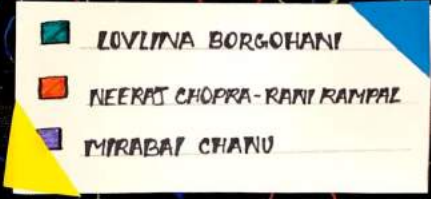 LOVLINA BORGOHANI
NEERAJ CHOPRA-RANI RAMPAL
MIRABAI CHANU